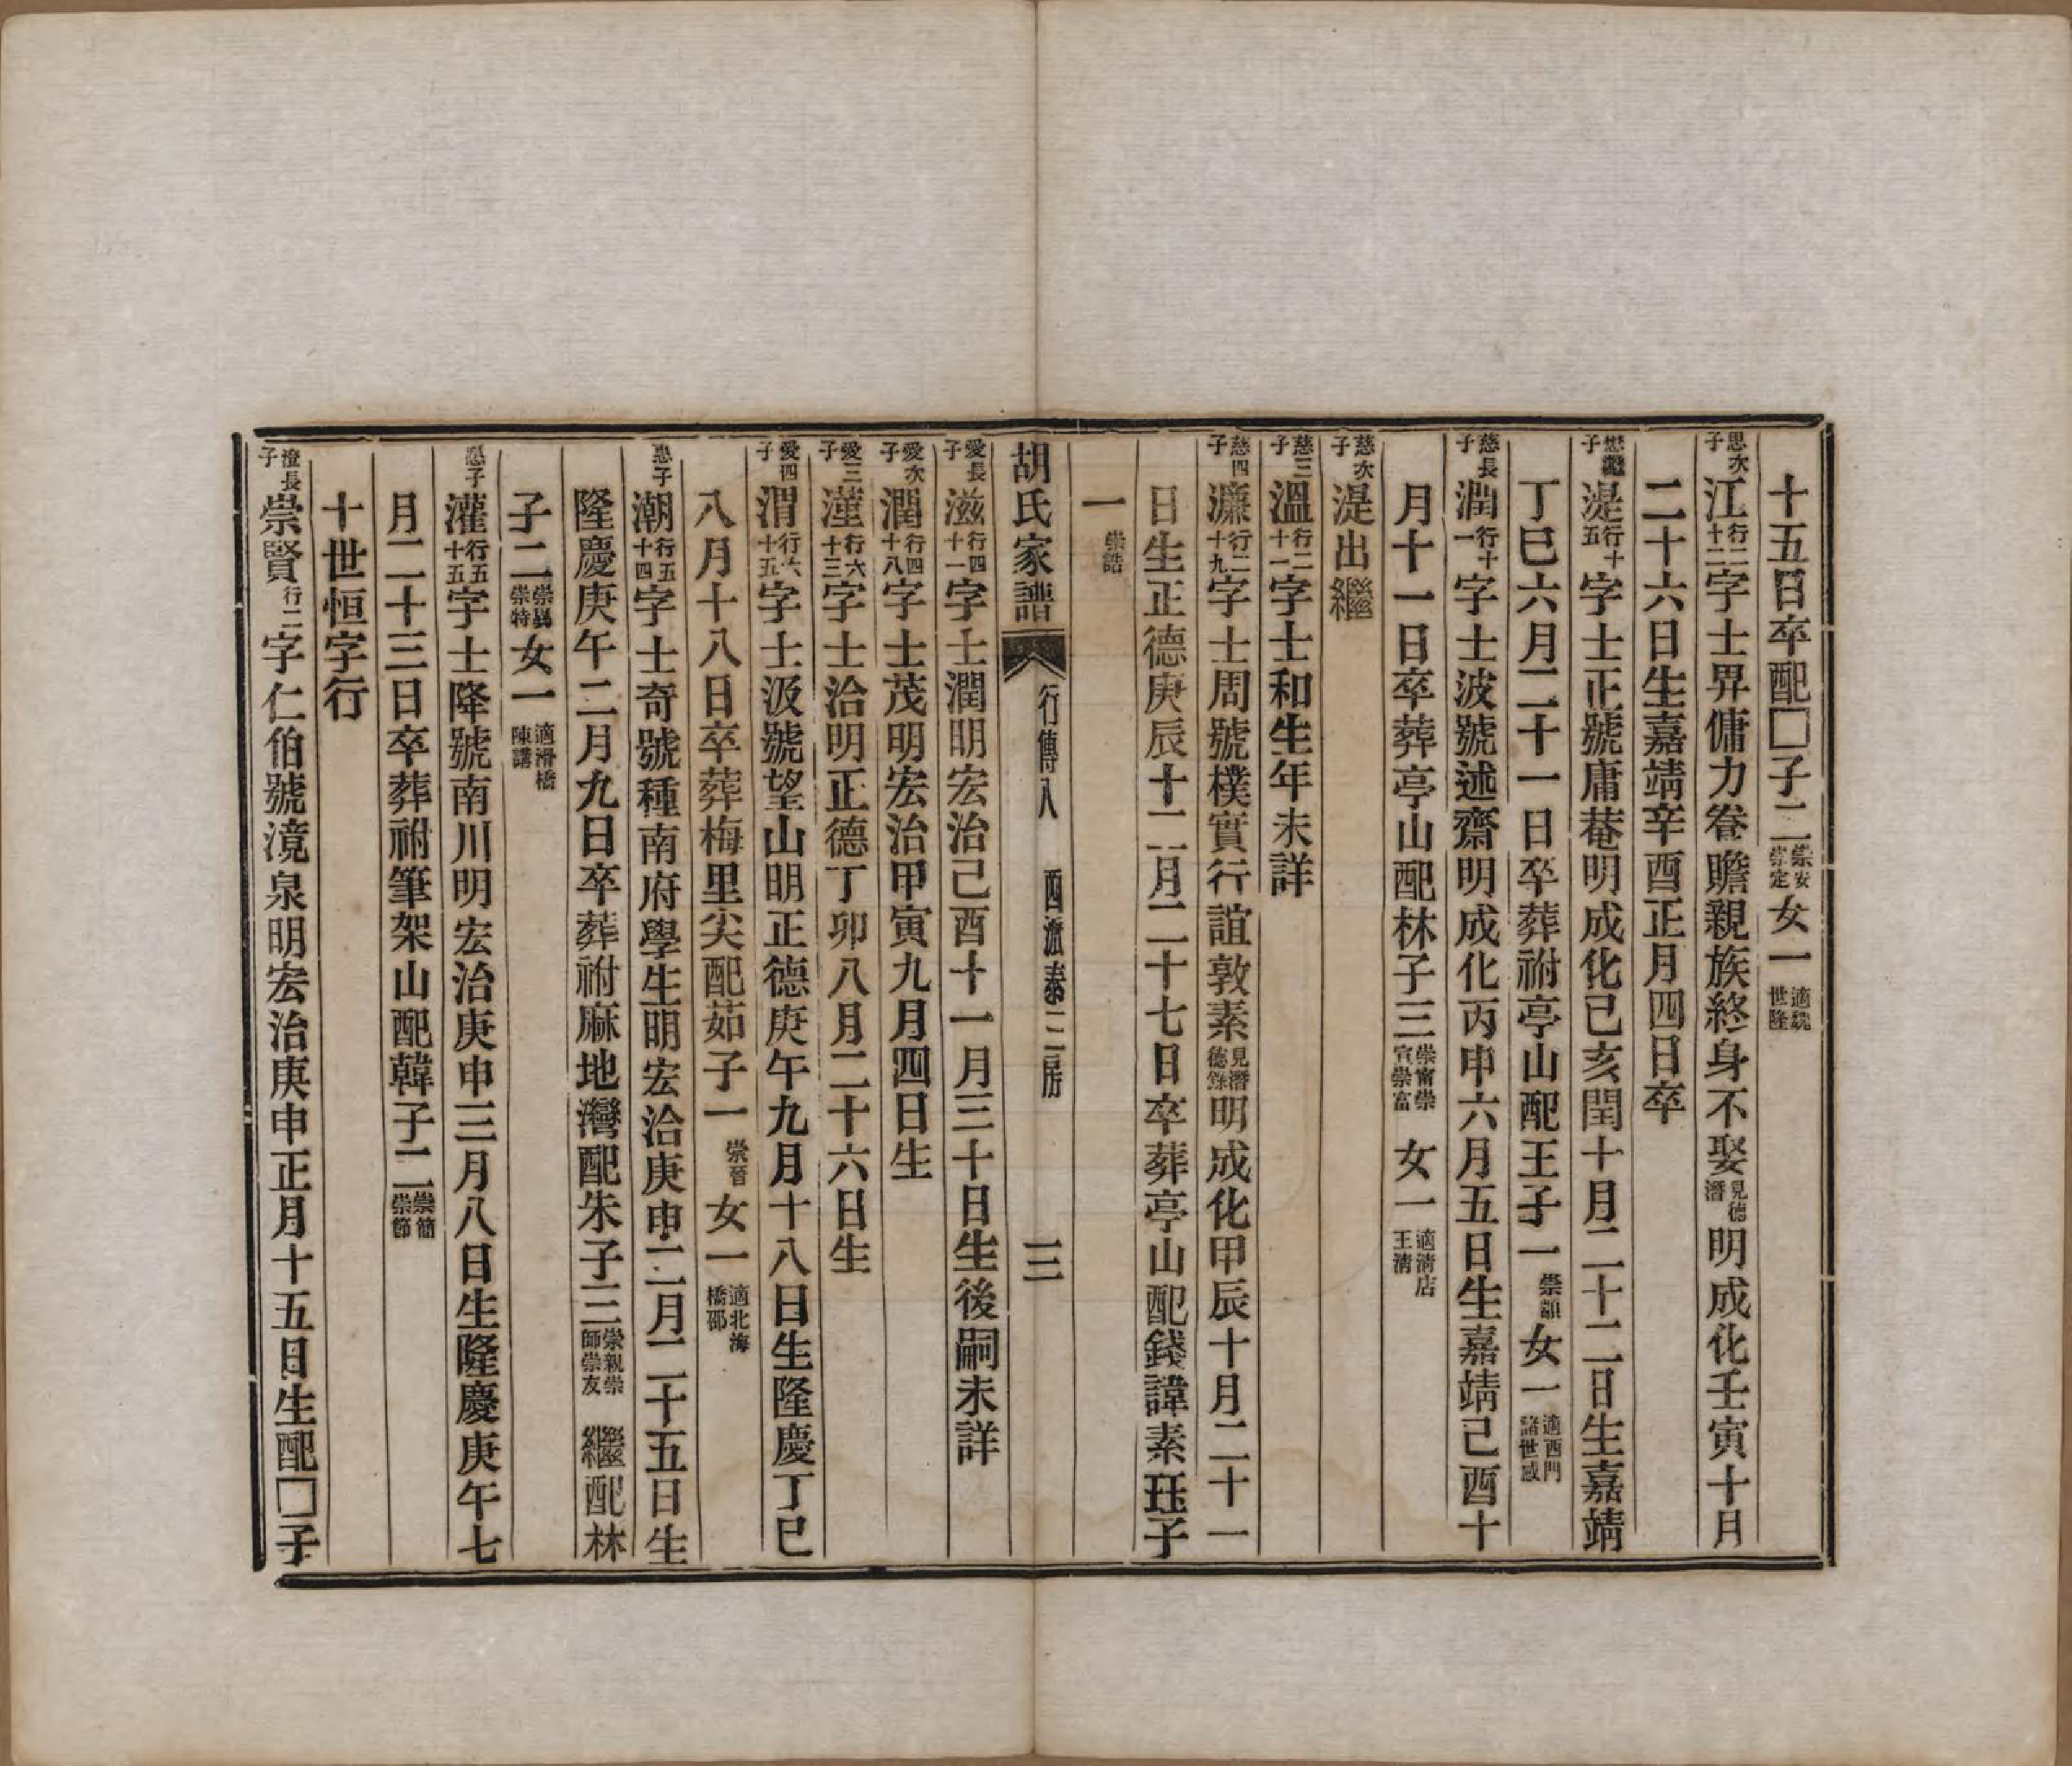 十五日卒配□子二崇安崇定女一適魏世隆
思次子江行二十二字士昇傭力養贍親族終身不娶見德潛明成化壬寅十月
二十六日生嘉靖辛酉正月四日卒
懋繼子湜行十五字士正號庸菴明成化己亥閏十月二十二日生嘉靖
丁巳六月二十一日卒葬祔亭山配王子一崇韻女一適西門諸世威
慈長子潤行十一字士波號述齋明成化丙申六月五日生嘉靖己酉十
月十一日卒葬亭山配林子三崇甯崇宣崇富女一適清店王清
慈次子湜出繼
慈三子溫行二十一字士和生年未詳
慈四子濂行二十九字士周號樸實行誼敦素見潛德錄明成化甲辰十月二十一
日生正德庚辰十二月二十七日卒葬亭山配錢諱素珏子
一崇誥
胡氏家譜 行傳八 四派泰二房 三
愛長子滋行四十一字士潤明宏治己酉十一月三十日生後嗣未詳
愛次子潤行四十八字士茂明宏治甲寅九月四日生
愛三子潼行六十三字士洽明正德丁卯八月二十六日生
愛四子渭行六十五字士汲號望山明正德庚午九月十八日生隆慶丁巳
八月十八日卒葬梅里尖配茹子一崇晉女一適北海橋邵
惠子潮行五十四字士奇號種南府學生明宏治庚申二月二十五日生
隆慶庚午二月九日卒葬祔麻地灣配朱子三崇親崇師崇友繼配林
子二崇異崇特女一適滑橋陳講
子灌行五十五字士降號南川明宏治庚申三月八日生隆慶庚午七
月二十三日卒葬祔筆架山配韓子二崇簡崇節
十世恒字行
澄長子崇賢行二字仁伯號滰泉明宏治庚申正月十五日生配□子